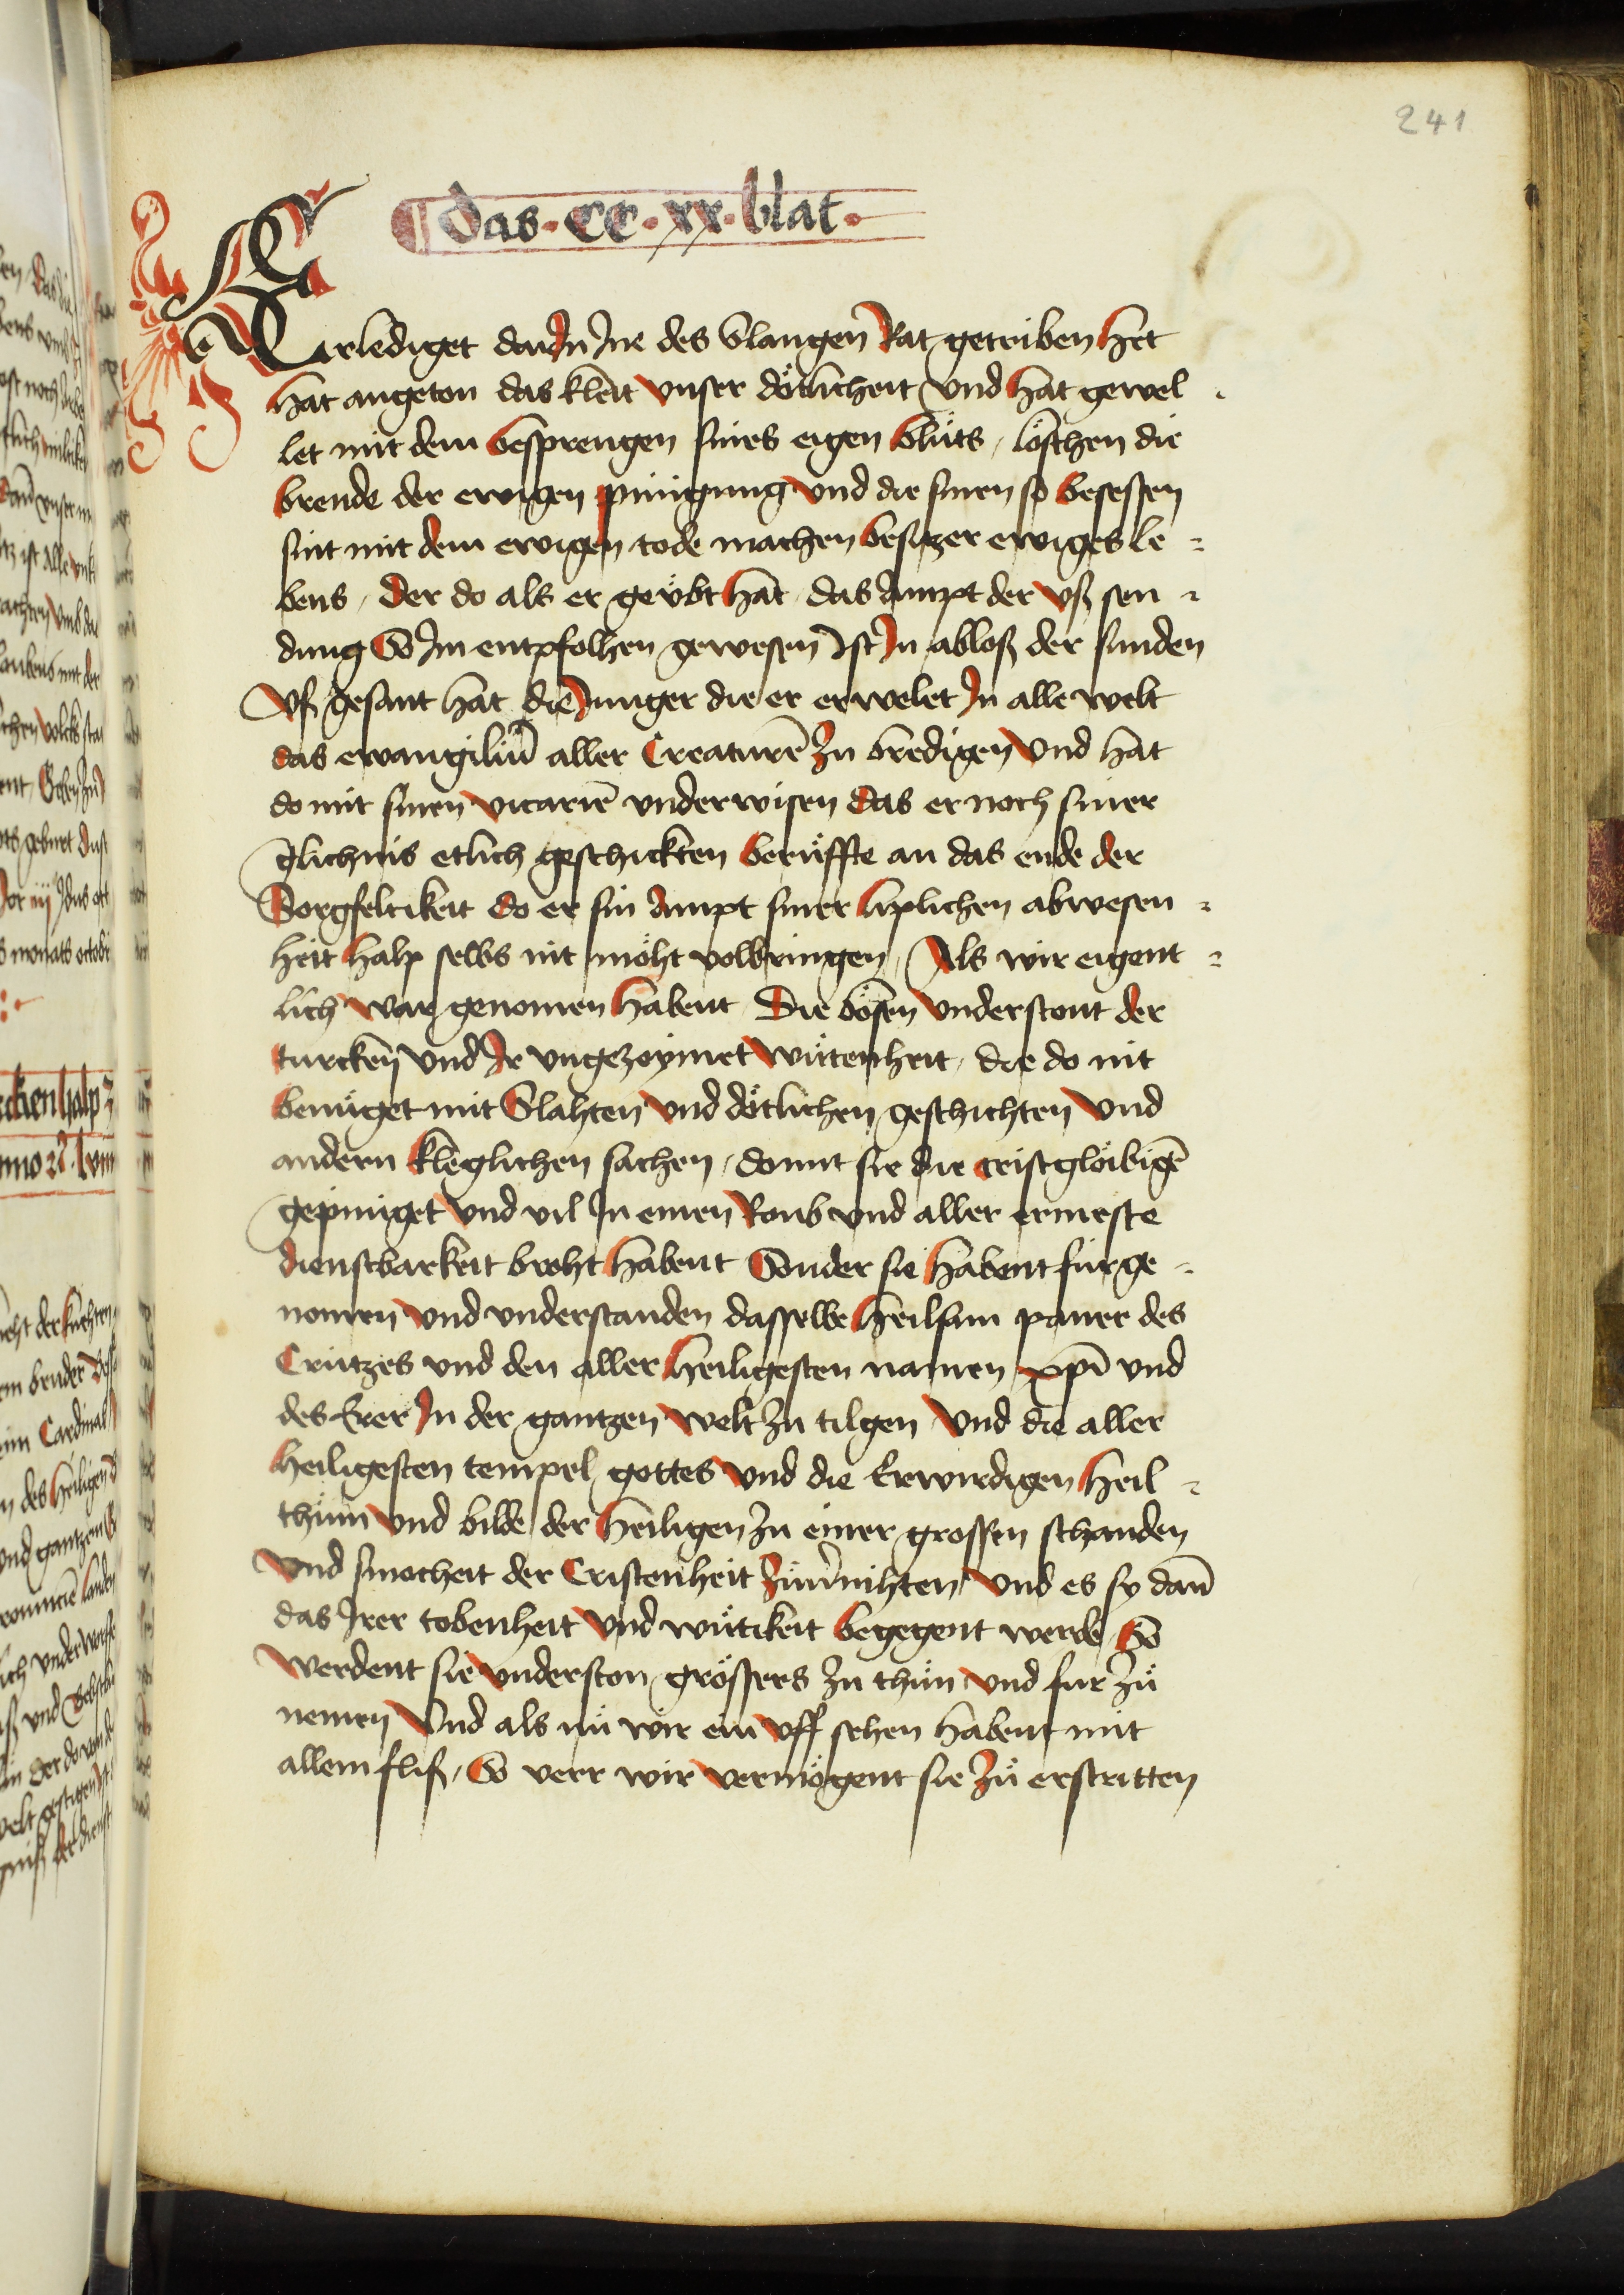 241
¶ das · CC · xx · blat ·
Erlediget darJn Jne des Slangen Rat getriben het
hat angeton das kleit vnser dötlicheit vnd hat gewel -
let mit dem besprengen sines eigen blůts, löschen die
brende der ewigen pinigung vnd die sinen so besessen
sint mit dem ewigen tode machen besitzer ewiges le -
bens, der do als er geübt hat das Ampt der vß sen -
dung So Jm entpfolhen gewesen Jst Jn abloß der sunden
vß gesant hat die Junger die er erwelet Jn alle welt
das ewangiliū aller Creaturē zu bredigen vnd hat
do mit sinen vicariē vnderwisen das er noch siner
glichnis etlich geschickten berüffte an das ende der
Sorgfeltikeit do er sin Ampt siner liplichen abwesen -
heit halp selbs nit möht volbringen, Als wir eigent -
lich war genomen habent Die bösen vnderstont der
turcken vnd Jr vngezoymet wütenheit, die do nit
benüget mit Slahten vnd dötlichen geschichten vnd
andern kleglichen sachen, domit sie die cristglöibigē
gepiniget vnd vil Jn einen Roub vnd aller ermeste
dienstbarkeit broht habent Sonder sie habent fürge -
nomen vnd vnderstanden dasselbe heilsam paner des
Crützes vnd den aller heiligesten namen xp̄i vnd
des Eer Jn der gantzen welt zu tilgen vnd die aller
heiligesten tempel gottes vnd die Erwirdigen heil -
thům vnd bilde der heiligen zu einer grossen schanden
vnd smocheit der Cristenheit zůuernihten vnd es sy dañ
das Jrer tobenheit vnd wütikeit begegent werde So
werdent sie vnderston grössers zu thůn vnd fur zů
nemen Vnd als nů wir ein vff sehen habent mit
allem fliß, So verr wir vermögent sie zů erstritten